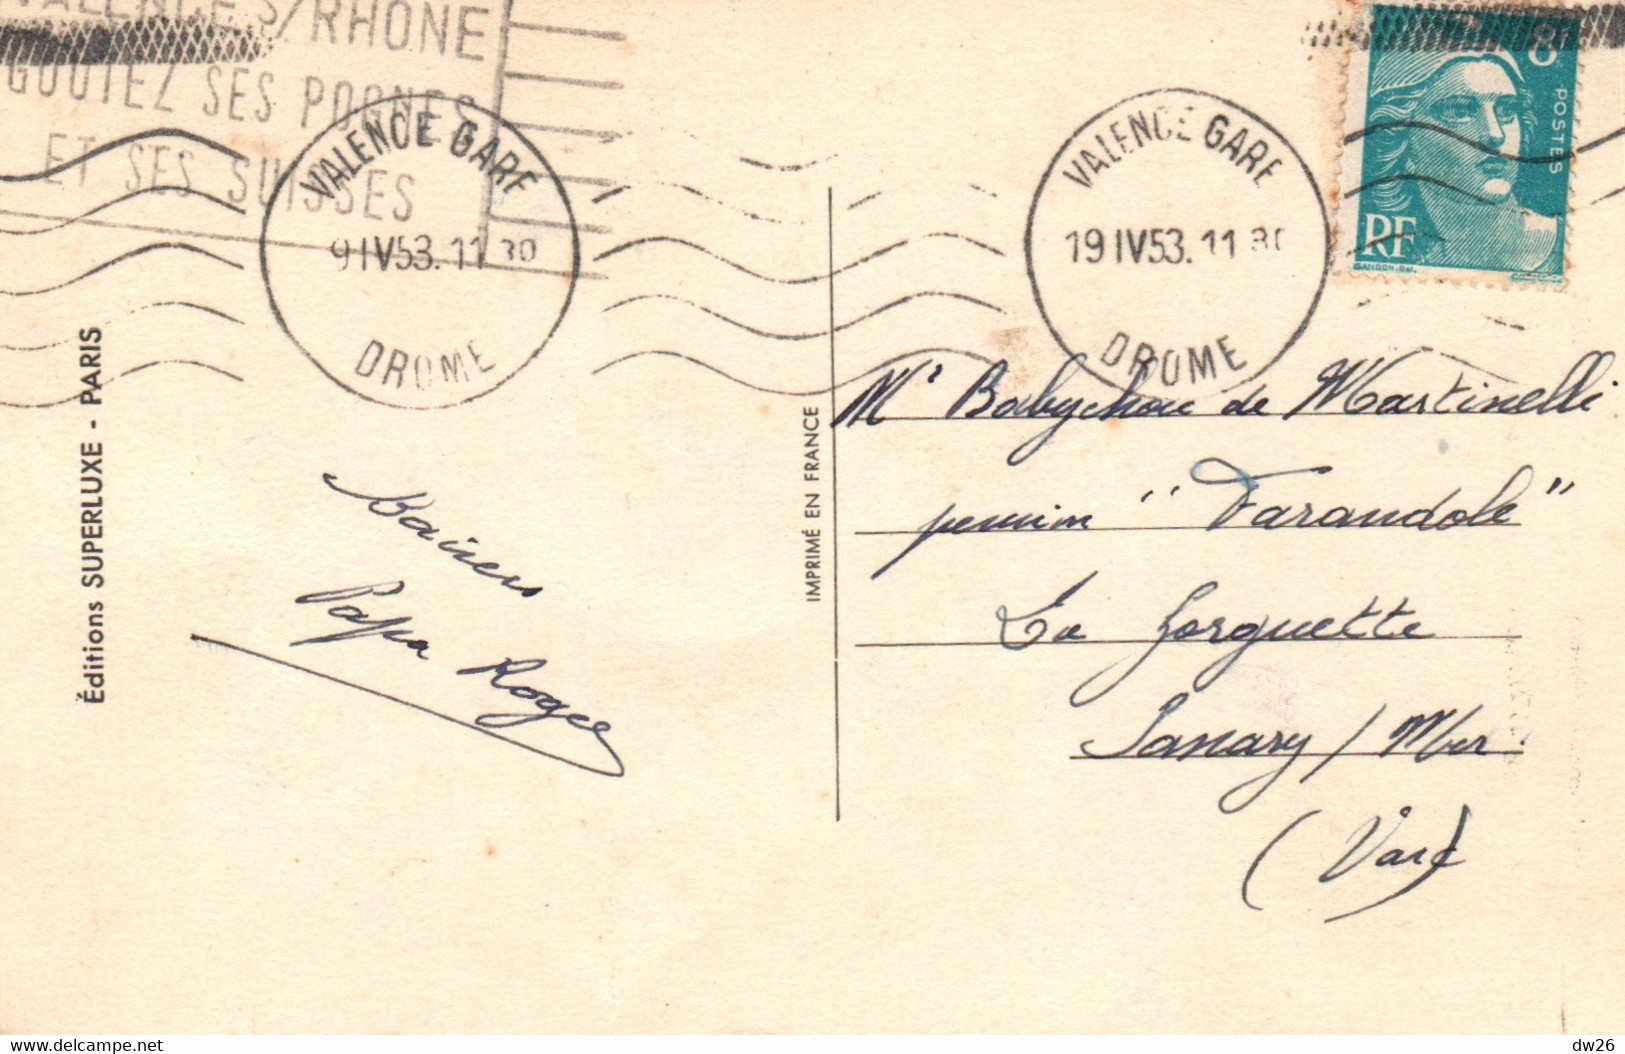 VALENCE S/RHONE
GOUTEZ SES POGNES
ET SES SUISSES
VALENCE GARE
9 IV 53. 11 30
DROME
VALENCE GARE
19 IV 53. 11 30
DROME
8F
POSTES
RF
GANDON.DEL.
Éditions SUPERLUXE - PARIS
IMPRIMÉ EN FRANCE
Baisers
Papa Roger
Mr Babychou de Martinelli
pension "Farandole"
La Gorguette
Sanary / Mer
(Var)
dw26